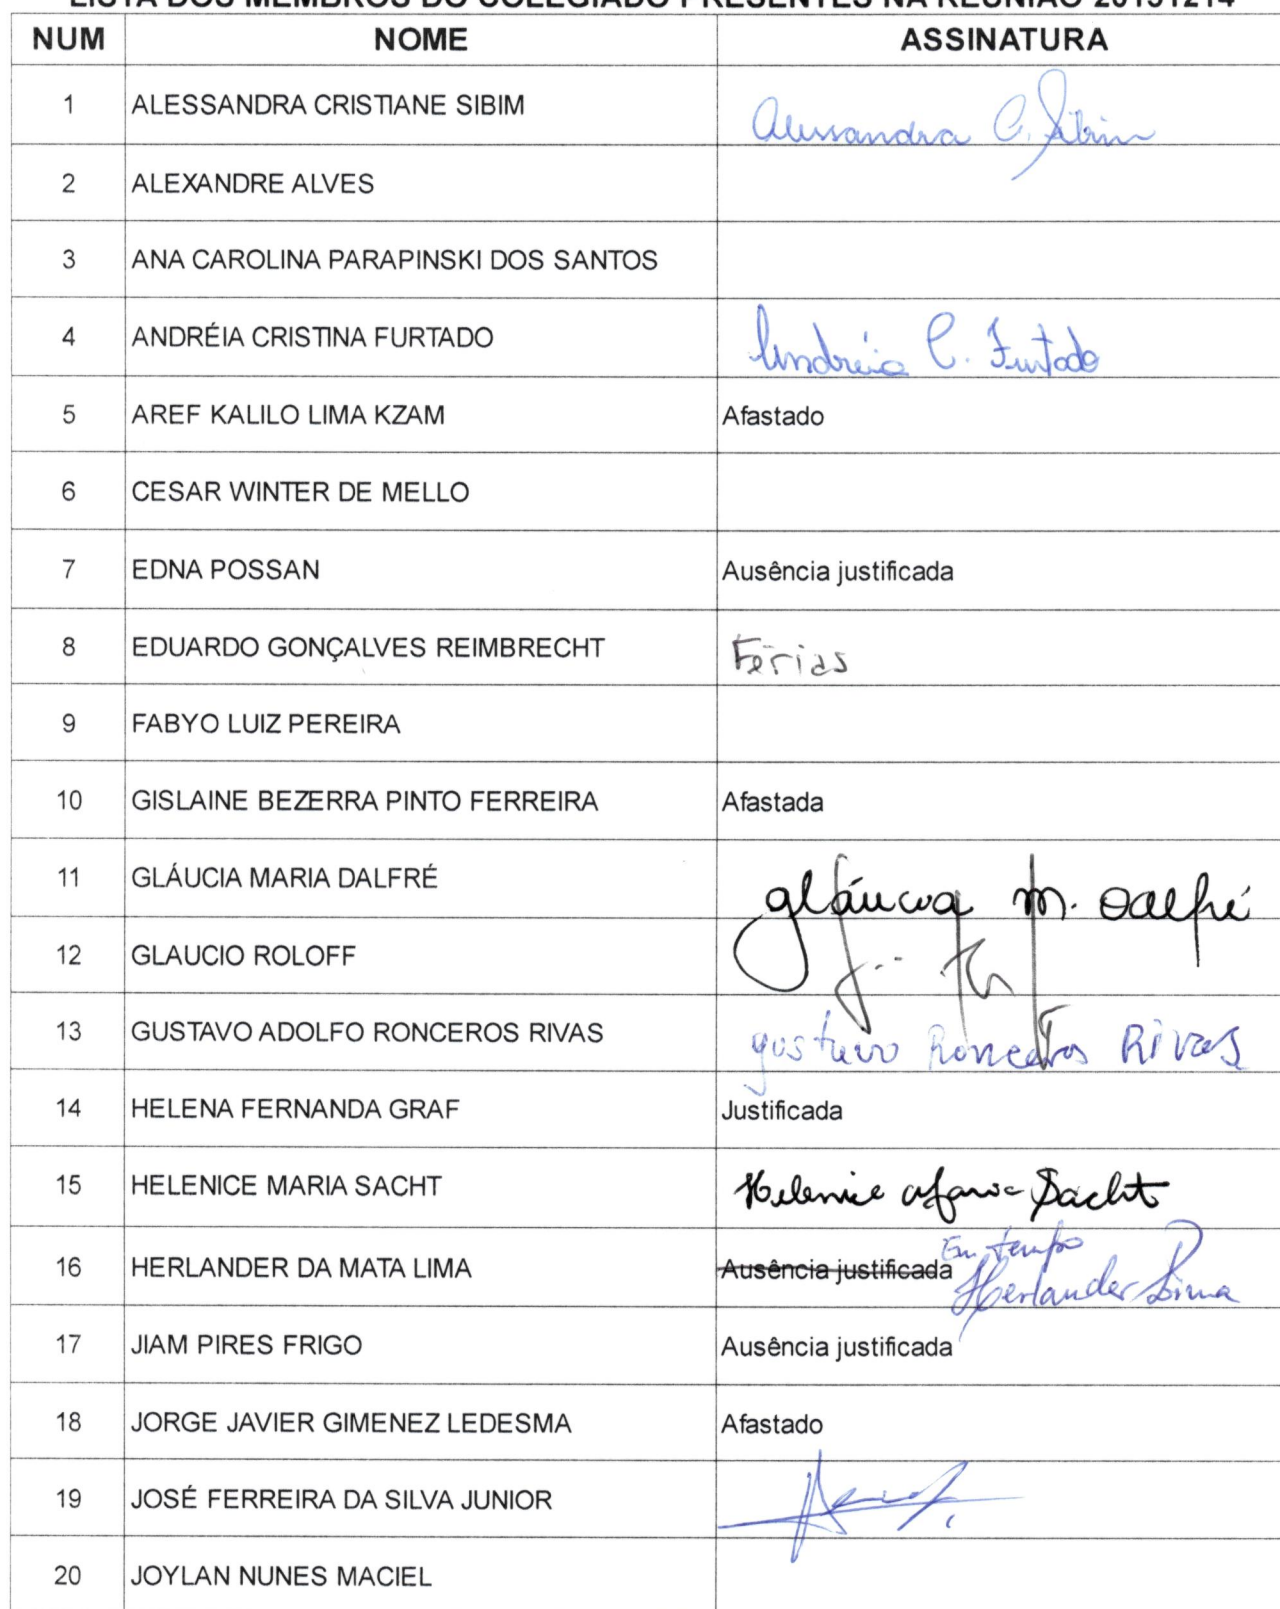 LISTA DOS MEMBROS DO COLEGIADO PRESENTES NA REUNIÃO 20151214
NUM NOME ASSINATURA
1 ALESSANDRA CRISTIANE SIBIM Alessandra C. Sibim
2 ALEXANDRE ALVES
3 ANA CAROLINA PARAPINSKI DOS SANTOS
4 ANDRÉIA CRISTINA FURTADO Andréia C. Furtado
5 AREF KALILO LIMA KZAM Afastado
6 CESAR WINTER DE MELLO
7 EDNA POSSAN Ausência justificada
8 EDUARDO GONÇALVES REIMBRECHT Férias
9 FABYO LUIZ PEREIRA
10 GISLAINE BEZERRA PINTO FERREIRA Afastada
11 GLÁUCIA MARIA DALFRÉ Gláucia M. Dalfré
12 GLAUCIO ROLOFF
13 GUSTAVO ADOLFO RONCEROS RIVAS Gustavo Ronceros Rivas
14 HELENA FERNANDA GRAF Justificada
15 HELENICE MARIA SACHT Helenice Maria Sacht
16 HERLANDER DA MATA LIMA Ausência justificada Em tempo
Herlander Lima
17 JIAM PIRES FRIGO Ausência justificada
18 JORGE JAVIER GIMENEZ LEDESMA Afastado
19 JOSÉ FERREIRA DA SILVA JUNIOR
20 JOYLAN NUNES MACIEL